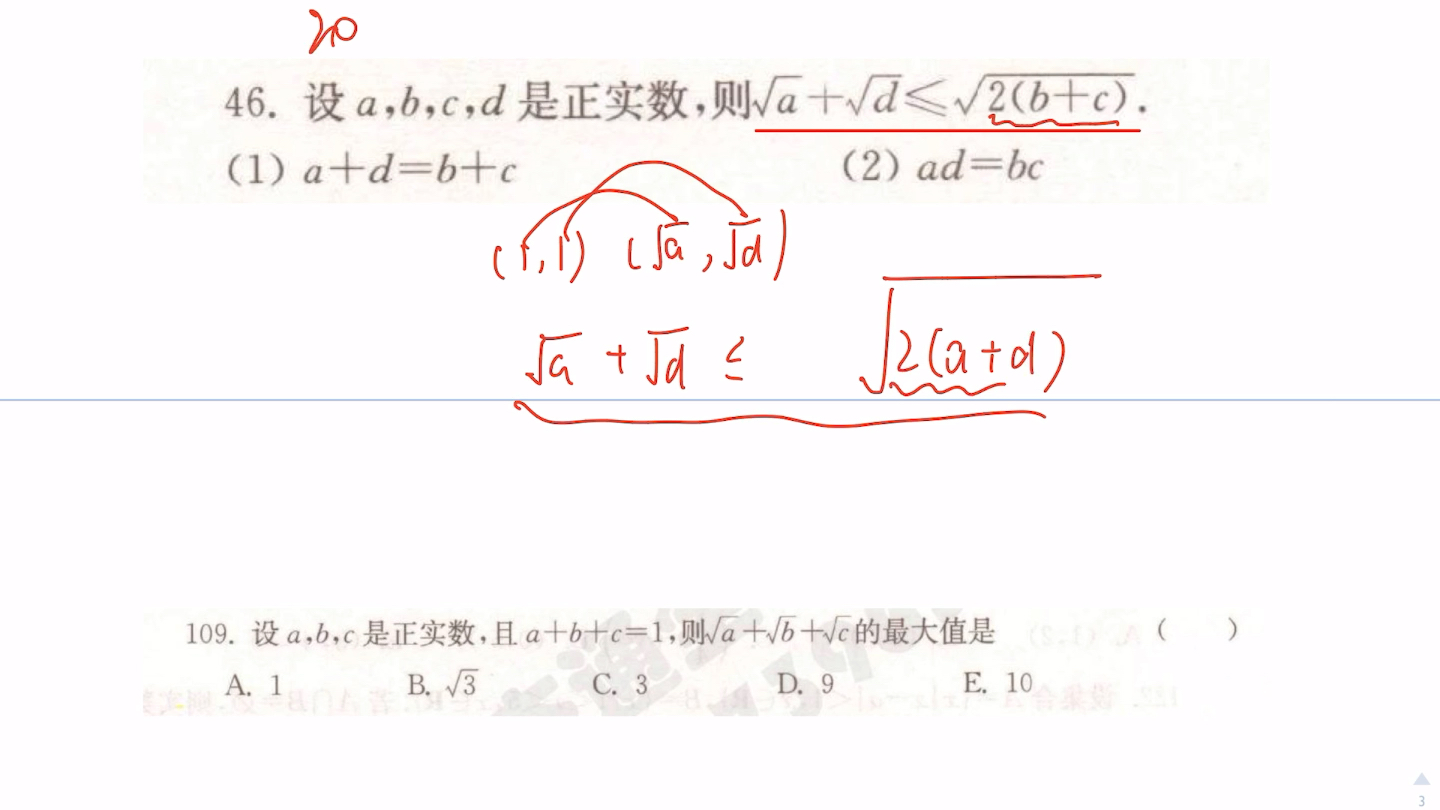 20
46. 设 a,b,c,d 是正实数,则√a+√d≤√2(b+c).
(1) a+d=b+c (2) ad=bc
(1,1) (√a,√d)
√a + √d ≤ √2(a+d)
109. 设 a,b,c 是正实数,且 a+b+c=1,则√a+√b+√c的最大值是 ( )
A. 1 B. √3 C. 3 D. 9 E. 10
3